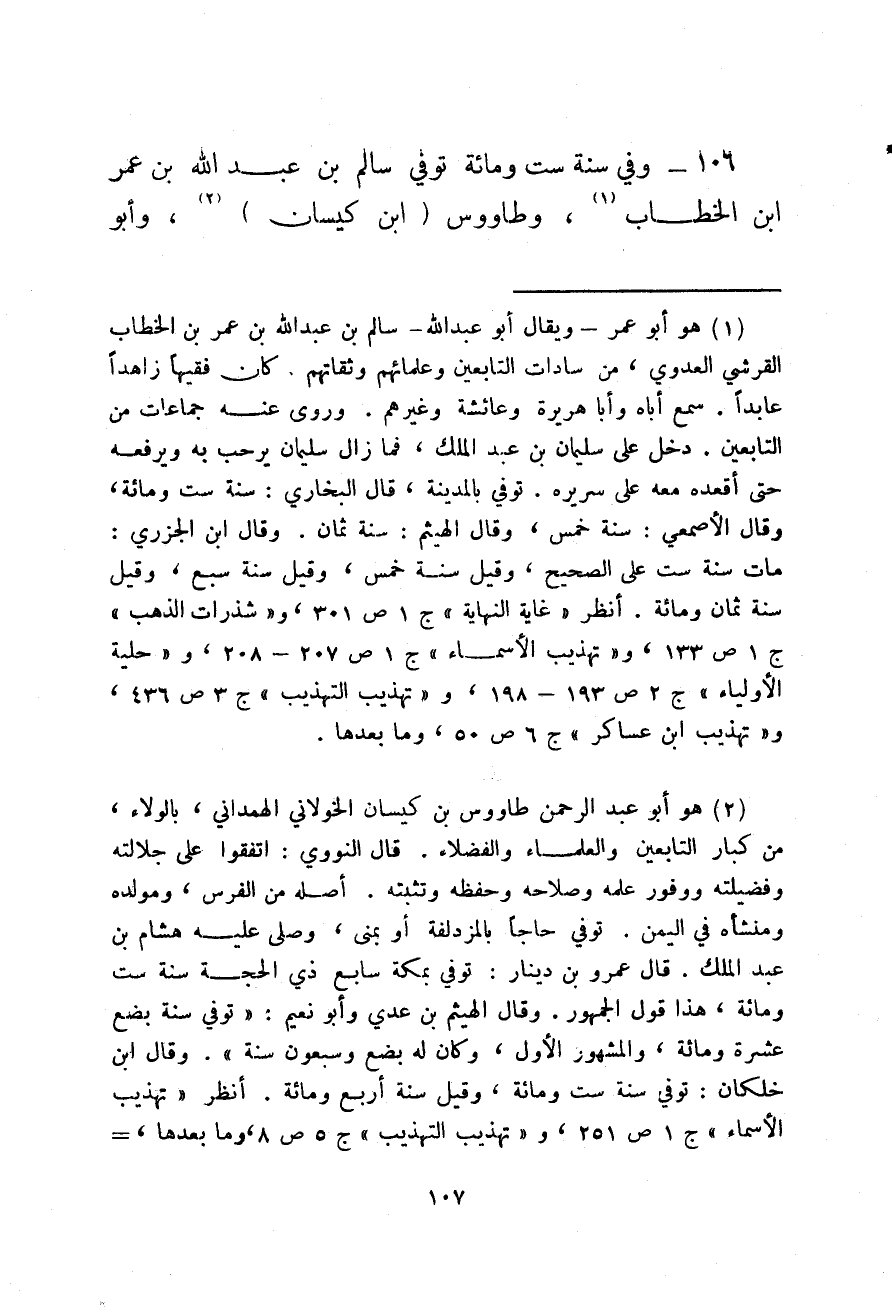 ١٠٦ – وفي سنة ست ومائة توفي سالم بن عبد الله بن عمر
ابن الخطاب (١) ، وطاووس ( ابن كيسان ) (٢) ، وأبو
(١) هو أبو عمر – ويقال أبو عبدالله – سالم بن عبدالله بن عمر بن الخطاب
القرشي العدوي ، من سادات التابعين وعلمائهم وثقاتهم . كان فقيهاً زاهداً
عابداً . سمع أباه وأبا هريرة وعائشة وغيرهم . وروى عنه جماعات من
التابعين . دخل على سليمان بن عبد الملك ، فما زال سليمان يرحب به ويرفعه
حتى أقعده معه على سريره . توفي بالمدينة ، قال البخاري : سنة ست ومائة ،
وقال الأصمعي : سنة خمس ، وقال الهيثم : سنة ثمان . وقال ابن الجزري :
مات سنة ست على الصحيح ، وقيل سنة خمس ، وقيل سنة سبع ، وقيل
سنة ثمان ومائة . أنظر « غاية النهاية » ج ١ ص ٣٠١ ، و« شذرات الذهب »
ج ١ ص ١٣٣ ، و« تهذيب الأسماء » ج ١ ص ٢٠٧ – ٢٠٨ ، و « حلية
الأولياء » ج ٢ ص ١٩٣ – ١٩٨ ، و « تهذيب التهذيب » ج ٣ ص ٤٣٦ ،
و« تهذيب ابن عساكر » ج ٦ ص ٥٠ ، وما بعدها .
(٢) هو أبو عبد الرحمن طاووس بن كيسان الخولاني الهمداني ، بالولاء ،
من كبار التابعين والعلماء والفضلاء . قال النووي : اتفقوا على جلالته
وفضيلته ووفور علمه وصلاحه وحفظه وتثبته . أصله من الفرس ، ومولده
ومنشأه في اليمن . توفي حاجاً بالمزدلفة أو بمنى ، وصلى عليه هشام بن
عبد الملك . قال عمرو بن دينار : توفي بمكة سابع ذي الحجة سنة ست
ومائة ، هذا قول الجمهور . وقال الهيثم بن عدي وأبو نعيم : « توفي سنة بضع
عشرة ومائة ، والمشهور الأول ، وكان له بضع وسبعون سنة » . وقال ابن
خلكان : توفي سنة ست ومائة ، وقيل سنة أربع ومائة . أنظر « تهذيب
الأسماء » ج ١ ص ٢٥١ ، و « تهذيب التهذيب » ج ٥ ص ٨ ، وما بعدها ، =
١٠٧